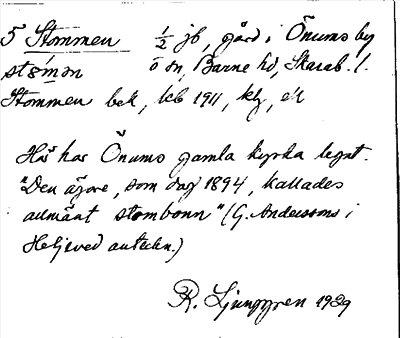 5 Stommen ½ jb, gård i Önums by
stɷ̀mən ö sn, Barne hd, Skarab. l.
Stommen bek, kb 1911, kg, ek
Här har Önums gamla kyrka legat.
"Den ägare, som dog 1894, kallades
allmänt stombonn" (G. Anderssons i
Heljeved anteckn.)
R. Ljunggren 1929